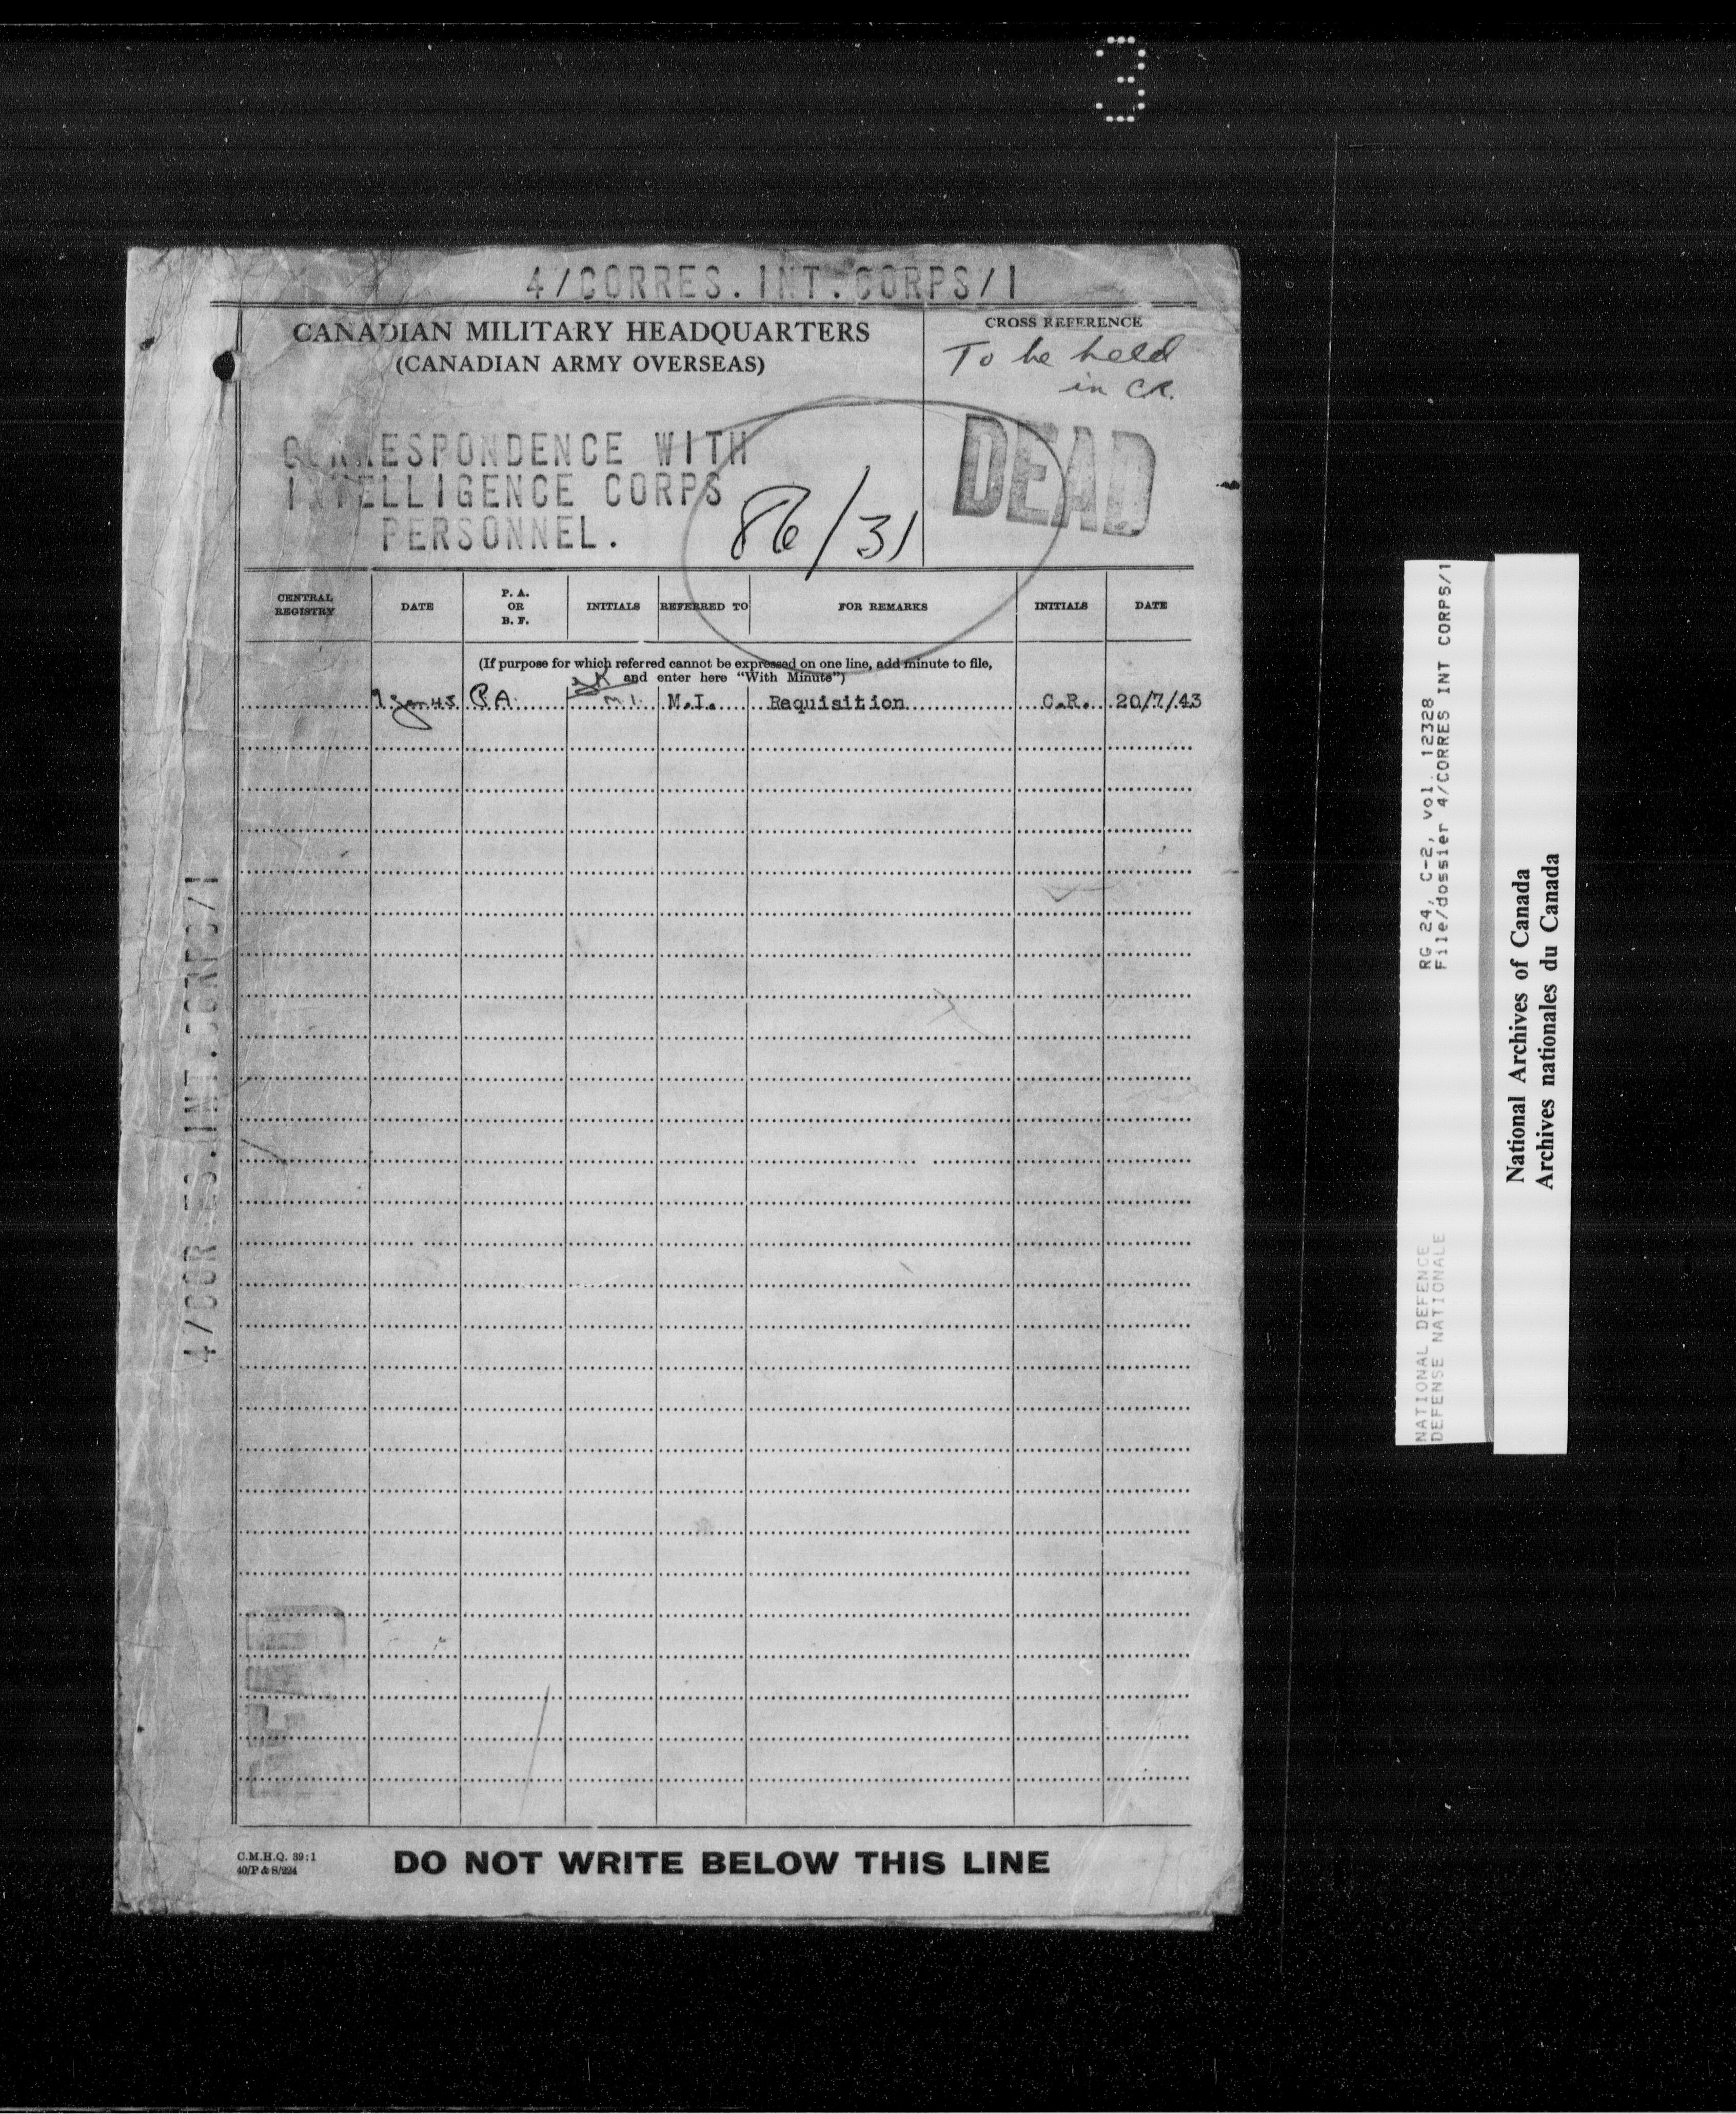 3
4/CORRES.INT.CORPS/1
CANADIAN MILITARY HEADQUARTERS
(CANADIAN ARMY OVERSEAS)
CROSS REFERENCE
To be held
in CR.
DEAD
CORRESPONDENCE WITH
INTELLIGENCE CORPS
PERSONNEL.
86/31
CENTRAL REGISTRY
DATE
P. A. OR B. F.
INITIALS
REFERRED TO
FOR REMARKS
INITIALS
DATE
(If purpose for which referred cannot be expressed on one line, add minute to file,
and enter here "With Minute")
P.A. M.I. M.I. Requisition C.R. 20/7/43
4/CORRES.INT.CORPS/1
C.M.H.Q. 39:1
40/P & S/224
DO NOT WRITE BELOW THIS LINE
RG 24, C-2, vol. 12328
File/dossier 4/CORRES INT CORPS/1
NATIONAL DEFENCE
DEFENSE NATIONALE
National Archives of Canada
Archives nationales du Canada